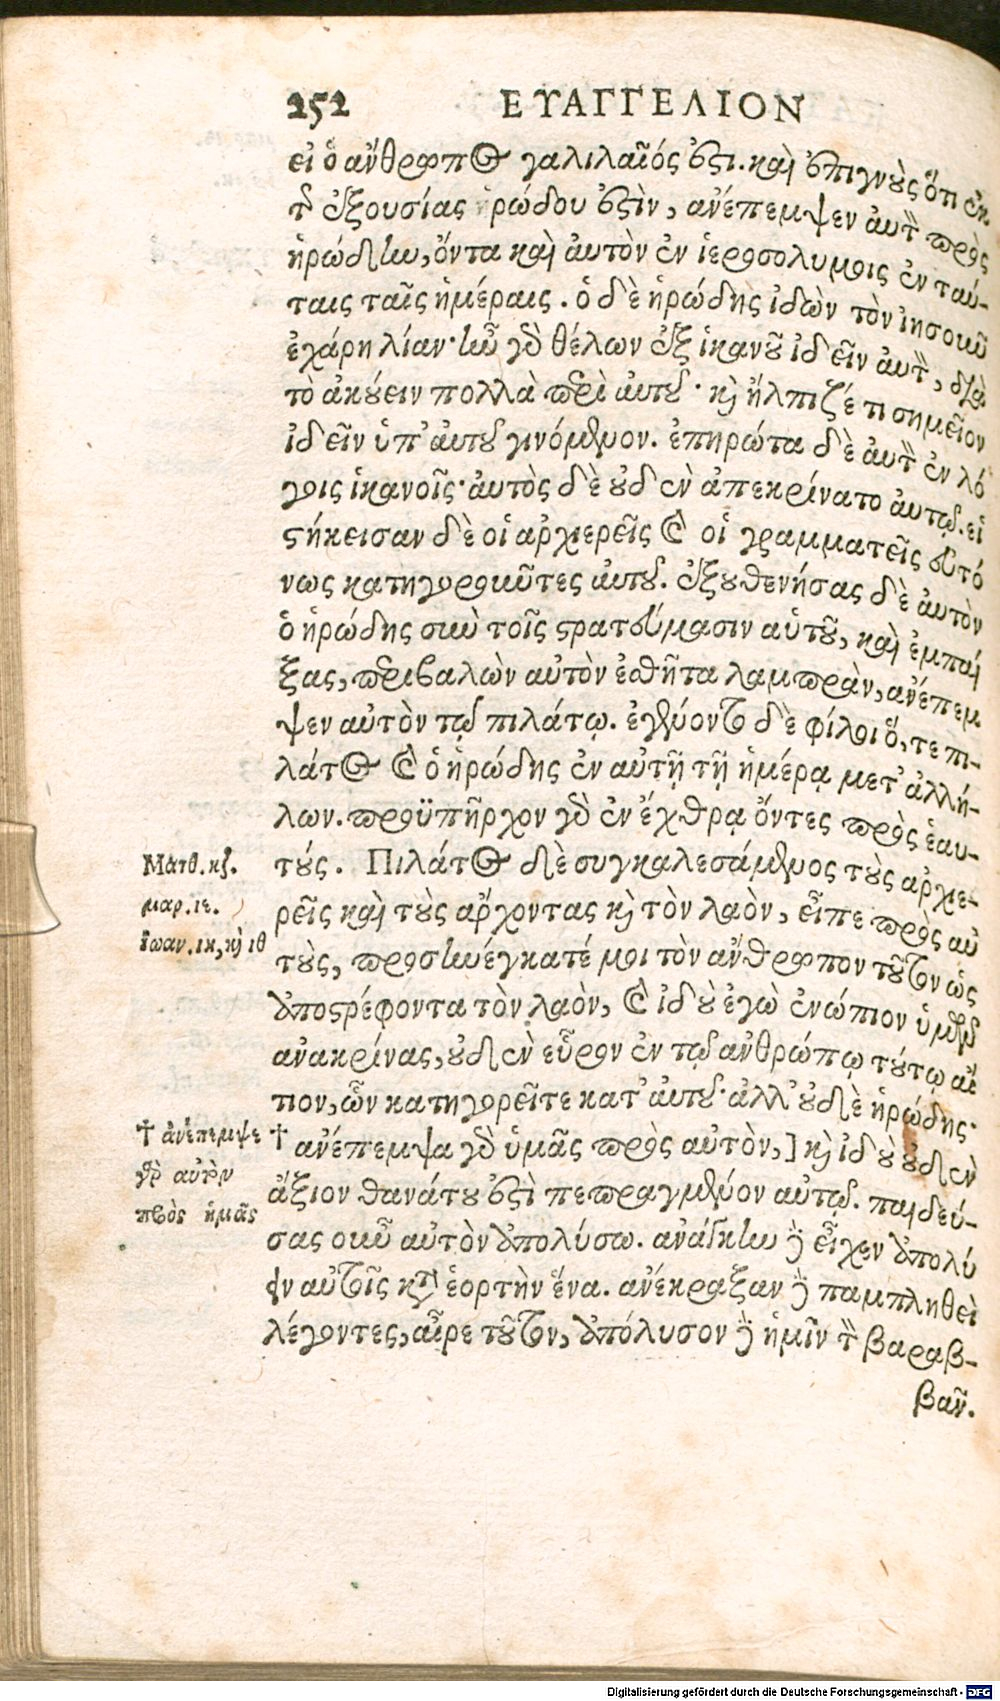 252 ΕΥΑΓΓΕΛΙΟΝ
εἰ ὁ ἄνθρωπος γαλιλαῖός ἐστι. καὶ ἐπιγνοὺς ὅτι ἐκ
τῆς ἐξουσίας ἡρώδου ἐστὶν, ἀνέπεμψεν αὐτὸν πρὸς
ἡρώδην, ὄντα καὶ αὐτὸν ἐν ἱεροσολύμοις ἐν ταύ-
ταις ταῖς ἡμέραις. ὁ δὲ ἡρώδης ἰδὼν τὸν ἰησοῦν
ἐχάρη λίαν· ἦν γὰρ θέλων ἐξ ἱκανοῦ ἰδεῖν αὐτὸν, διὰ
τὸ ἀκούειν πολλὰ περὶ αὐτοῦ· καὶ ἤλπιζέ τι σημεῖον
ἰδεῖν ὑπ' αὐτοῦ γινόμενον. ἐπηρώτα δὲ αὐτὸν ἐν λό
γοις ἱκανοῖς· αὐτὸς δὲ οὐδὲν ἀπεκρίνατο αὐτῷ. εἱ
στήκεισαν δὲ οἱ ἀρχιερεῖς καὶ οἱ γραμματεῖς εὐτό
νως κατηγοροῦντες αὐτοῦ. ἐξουθενήσας δὲ αὐτὸν
ὁ ἡρώδης σὺν τοῖς στρατεύμασιν αὑτοῦ, καὶ ἐμπαί
ξας, περιβαλὼν αὐτὸν ἐσθῆτα λαμπρὰν, ἀνέπεμ
ψεν αὐτὸν τῷ πιλάτῳ. ἐγένοντο δὲ φίλοι ὅ, τε πι-
λάτος καὶ ὁ ἡρώδης ἐν αὐτῇ τῇ ἡμέρᾳ μετ' ἀλλή-
λων. προϋπῆρχον γὰρ ἐν ἔχθρᾳ ὄντες πρὸς ἑαυ-
τούς. Πιλάτος δὲ συγκαλεσάμενος τοὺς ἀρχιε-
ρεῖς καὶ τοὺς ἄρχοντας καὶ τὸν λαὸν, εἶπε πρὸς αὐ
τοὺς, προσηνέγκατέ μοι τὸν ἄνθρωπον τοῦτον ὡς
ἀποστρέφοντα τὸν λαὸν, καὶ ἰδοὺ ἐγὼ ἐνώπιον ὑμῶν
ἀνακρίνας, οὐδὲν εὗρον ἐν τῷ ἀνθρώπῳ τούτῳ αἴ
τιον, ὧν κατηγορεῖτε κατ' αὐτοῦ· ἀλλ' οὐδὲ ἡρώδης·
† ἀνέπεμψα γὰρ ὑμᾶς πρὸς αὐτὸν,] καὶ ἰδοὺ οὐδὲν
ἄξιον θανάτου ἐστὶ πεπραγμένον αὐτῷ. παιδεύ-
σας οὖν αὐτὸν ἀπολύσω. ἀνάγκην δὲ εἶχεν ἀπολύ
ειν αὐτοῖς κατὰ ἑορτὴν ἕνα. ἀνέκραξαν δὲ παμπληθεὶ
λέγοντες, αἶρε τοῦτον, ἀπόλυσον δὲ ἡμῖν τὸν βαραβ-
βᾶν.
Ματθ. κζ.
μαρ. ιε.
Ἰωαν. ιη, καὶ ιθ
† ἀνέπεμψε
γὰρ αὐτὸν
πρὸς ἡμᾶς
Digitalisierung gefördert durch die Deutsche Forschungsgemeinschaft - DFG